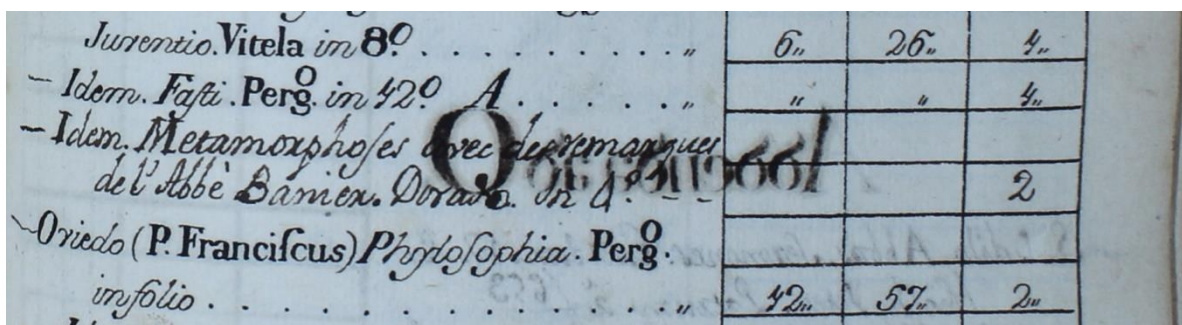 Juventio. Vitela in 8º. . . . . . . . . . . „ 6„ 26„ 4„
– Idem. Fasti. Pergº. in 12º A . . . . . . „ „ „ 4„
– Idem. Metamorphoſes avec des remarques
de l'Abbè Banier. Dorado. In 4º. - - 2
~Oviedo (P. Franciſcus) Phyloſophia. Pergº.
in folio . . . . . . . . . . . . . . . „ 42„ 57„ 2„